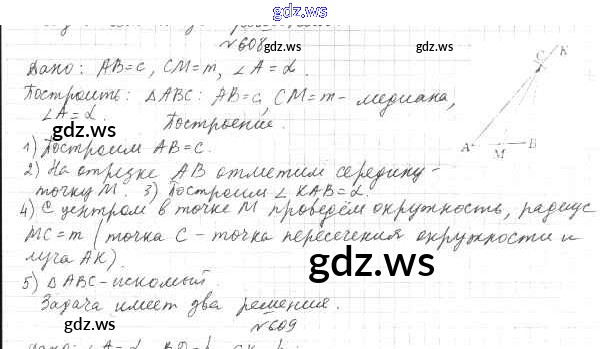 gdz.ws
№608
gdz.ws
Дано: AB=c, CM=m, ∠A=α.
Построить: △ABC: AB=c, CM=m - медиана,
∠A=α. Построение.
gdz.ws
1) Построим AB=c.
2) На отрезке AB отметим середину -
точку M. 3) Построим ∠KAB=α
gdz.ws
4) С центром в точке M проведём окружность, радиус
MC=m (точка C - точка пересечения окружности и
луча AK)
gdz.ws
5) △ABC - искомый
Задача имеет два решения.
gdz.ws
№609
Дано: ∠A=α,
gdz.ws
C K
A M B